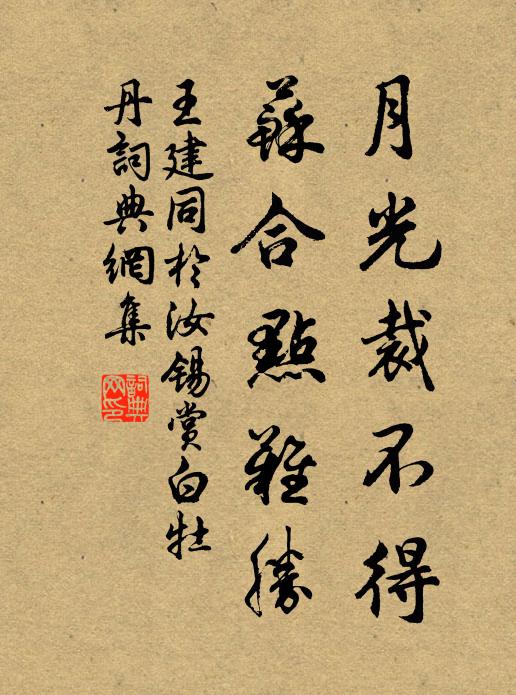 月光裁不得
蘇合點難勝
王建同於汝錫賞白牡
丹詞典網集
詞典網印